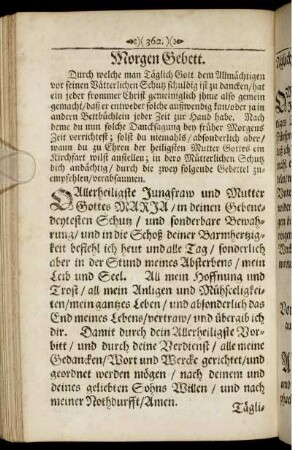 )( 362. )(
Morgen Gebett.
Durch welche man Täglich Gott dem Allmächtigen
vor seinen Vätterlichen Schutz schuldig ist zu dancken/hat
ein jeder frommer Christ gemeiniglich ihme also gemein
gemacht/daß er entweder solche auswendig kan/oder ja in
andern Bettbüchlein jeder Zeit zur Hand habe. Nach
deme du nun solche Dancksagung bey früher Morgens
Zeit verrichtest; solst du niemahls/absonderlich aber/
wann du zu Ehren der heiligsten Mutter Gottes ein
Kirchfart wilst anstellen; in dero Mütterlichen Schutz
dich andächtig/durch die zwey folgende Gebettel zu-
empfehlen/versaumen.
O Allerheiligste Jungfraw und Mutter
Gottes MARJA/in deinen Gebene-
deytesten Schutz/ und sonderbare Bewah-
rung/und in die Schoß deiner Barmhertzig-
keit befihl ich heut und alle Tag/sonderlich
aber in der Stund meines Absterbens/mein
Leib und Seel. All mein Hoffnung und
Trost/all mein Anligen und Mühseeligkei-
ten/mein gantzes Leben/und absonderlich das
End meines Lebens/vertraw/und übergib ich
dir. Damit durch dein Allerheiligste Vor-
bitt/und durch deine Verdienst/alle meine
Gedancken/Wort und Wercke gerichtet/und
geordnet werden mögen/nach deinem und
deines geliebten Sohns Willen/und nach
meiner Nothdurfft/Amen.
Tägli-